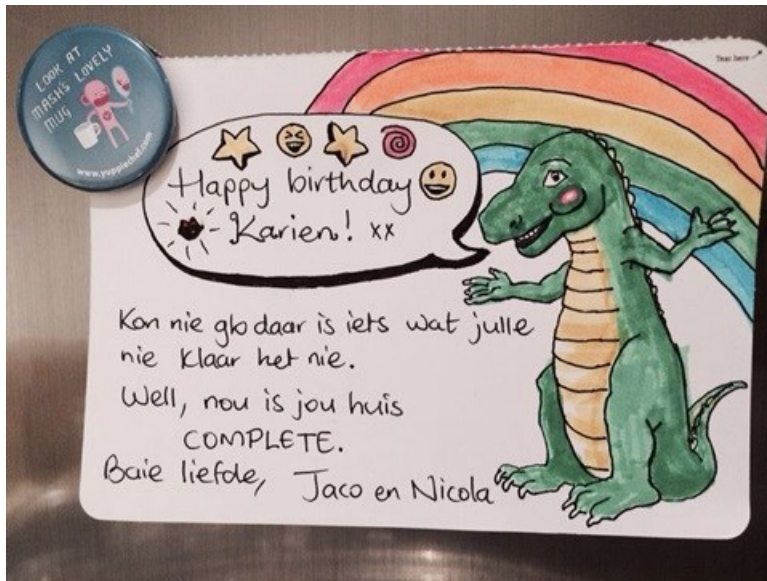 LOOK AT
MASH'S LOVELY
MUG
www.yuppiechef.com
Text here
Happy birthday
Karien! xx
Kon nie glo daar is iets wat julle
nie klaar het nie.
Well, nou is jou huis
COMPLETE.
Baie liefde, Jaco en Nicola